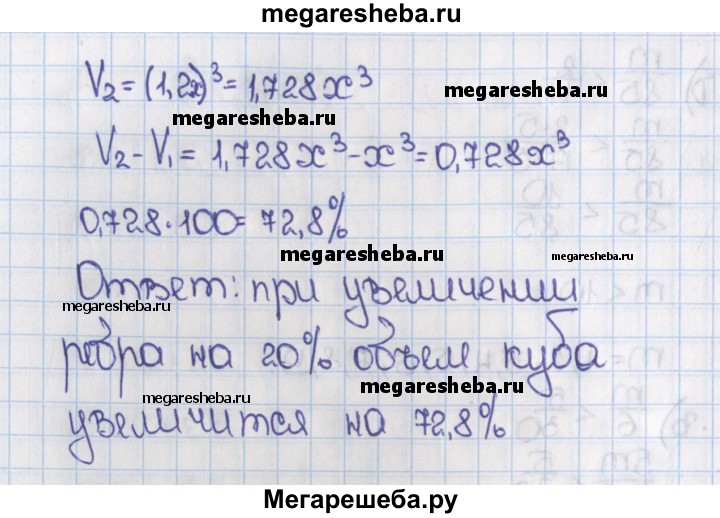 megaresheba.ru
V₂ = (1,2x)³ = 1,728x³
megaresheba.ru
megaresheba.ru
V₂ - V₁ = 1,728x³ - x³ = 0,728x³
0,728·100 = 72,8%
megaresheba.ru
megaresheba.ru
Ответ: при увеличении
megaresheba.ru
ребра на 20% объем куба
megaresheba.ru
megaresheba.ru
увеличится на 72,8%
Мегарешеба.ру